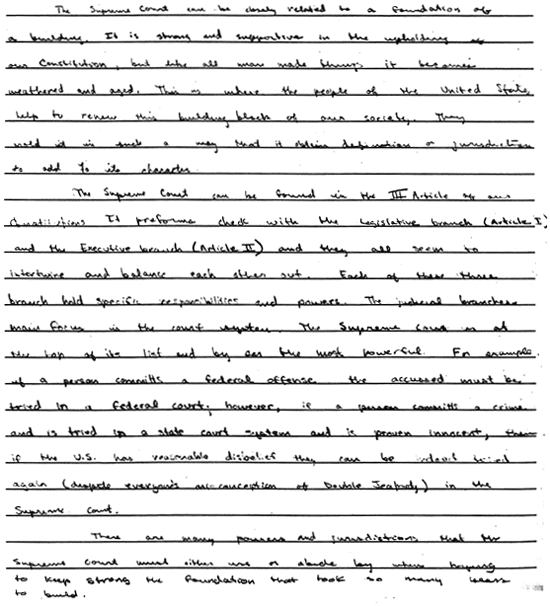 The Supreme Court can be closely related to a foundation of
a building. It is strong and supportive in the upholding of
our Constitution, but like all man made things it becomes
weathered and aged. This is where the people of the United States
help to renew this building block of our society. They
mold it in such a way that it obtain defination or jurisdiction
to add to its character.
The Supreme Court can be found in the III Article of our
Constitutions It preforms check with the Legislative branch (Article I)
and the Executive branch (Article II) and they all seem to
intertwine and balance each other out. Each of these three
branch hold specific responsibilities and powers. The judicial branches
main focus is the court system. The Supreme Court is at
the top of its list and by far the most powerful. For example,
if a person committs a federal offense the accussed must be
tried in a federal court; however, if a person committs a crime
and is tried in a state court system and is proven innocent,
if the U.S. has reasonable disbelief they can be tried
again (despite everyone's misconception of Double Jeapody,) in the
Supreme Court.
There are many powers and jurisdictions that the
Supreme Court must either use or abide by when hoping
to keep strong the foundation that took so many years
to build.